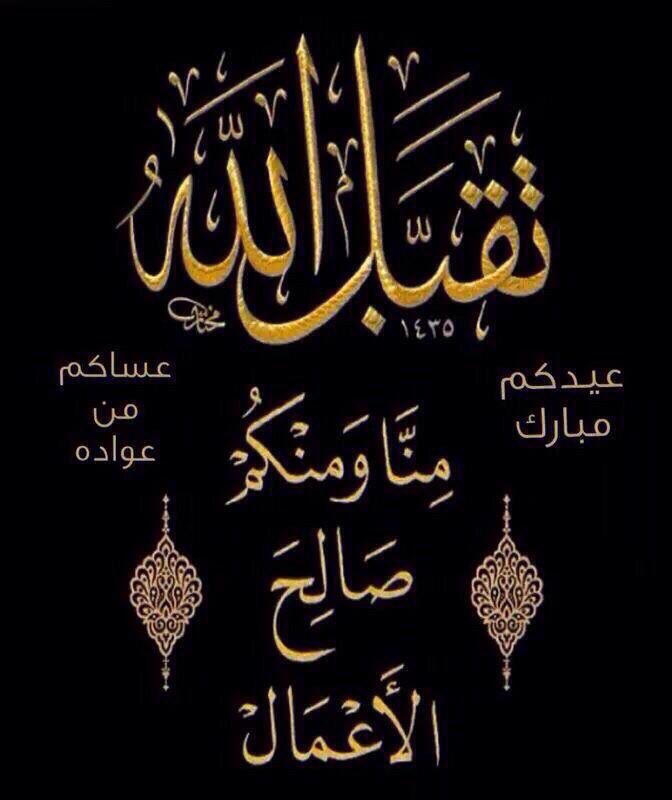 تَقَبَّلَ اللَّهُ
١٤٣٥
عيدكم
مبارك
عساكم
من
عواده
مِنَّا وَمِنْكُمْ
صَالِحَ
الأَعْمَالْ